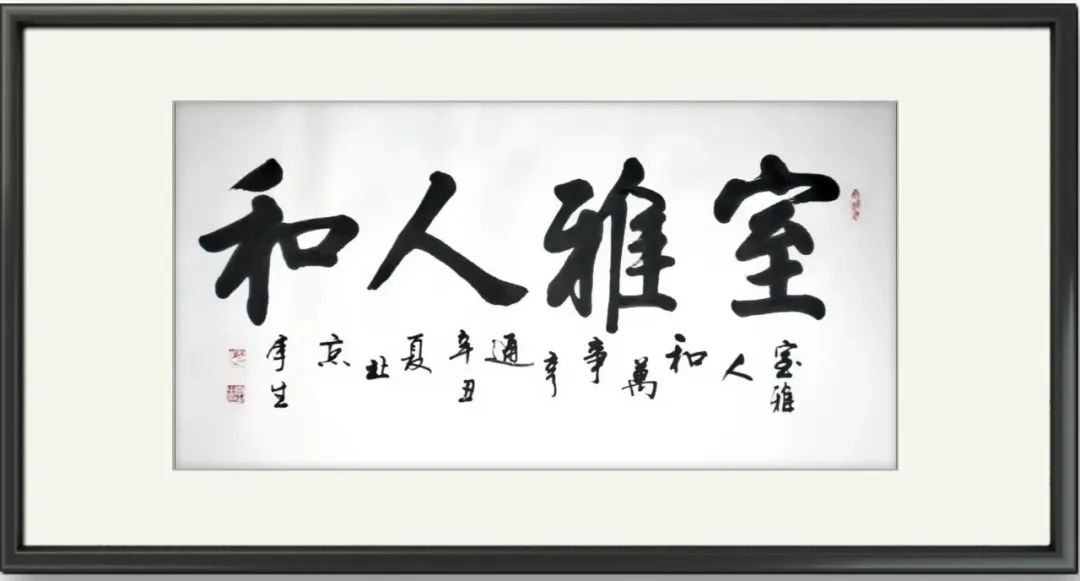 室雅人和
室雅人和萬事亨通辛丑夏北京
生